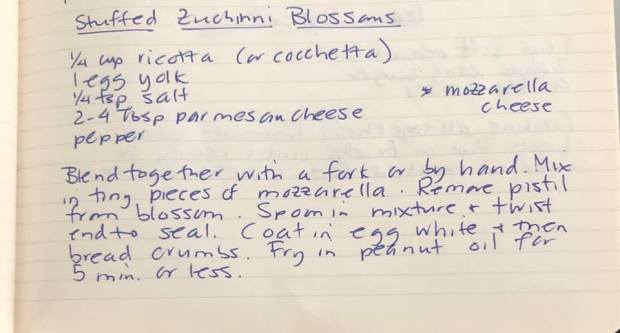 Stuffed Zuchinni Blossoms
1/4 cup ricotta (or cocchetta)
1 egg yolk
1/4 tsp salt
2-4 Tbsp parmesan cheese
pepper
* mozzarella
cheese
Blend together with a fork or by hand. Mix
in tiny pieces of mozzarella. Remove pistil
from blossom. Spoon in mixture + twist
end to seal. Coat in egg white + then
bread crumbs. Fry in peanut oil for
5 min. or less.